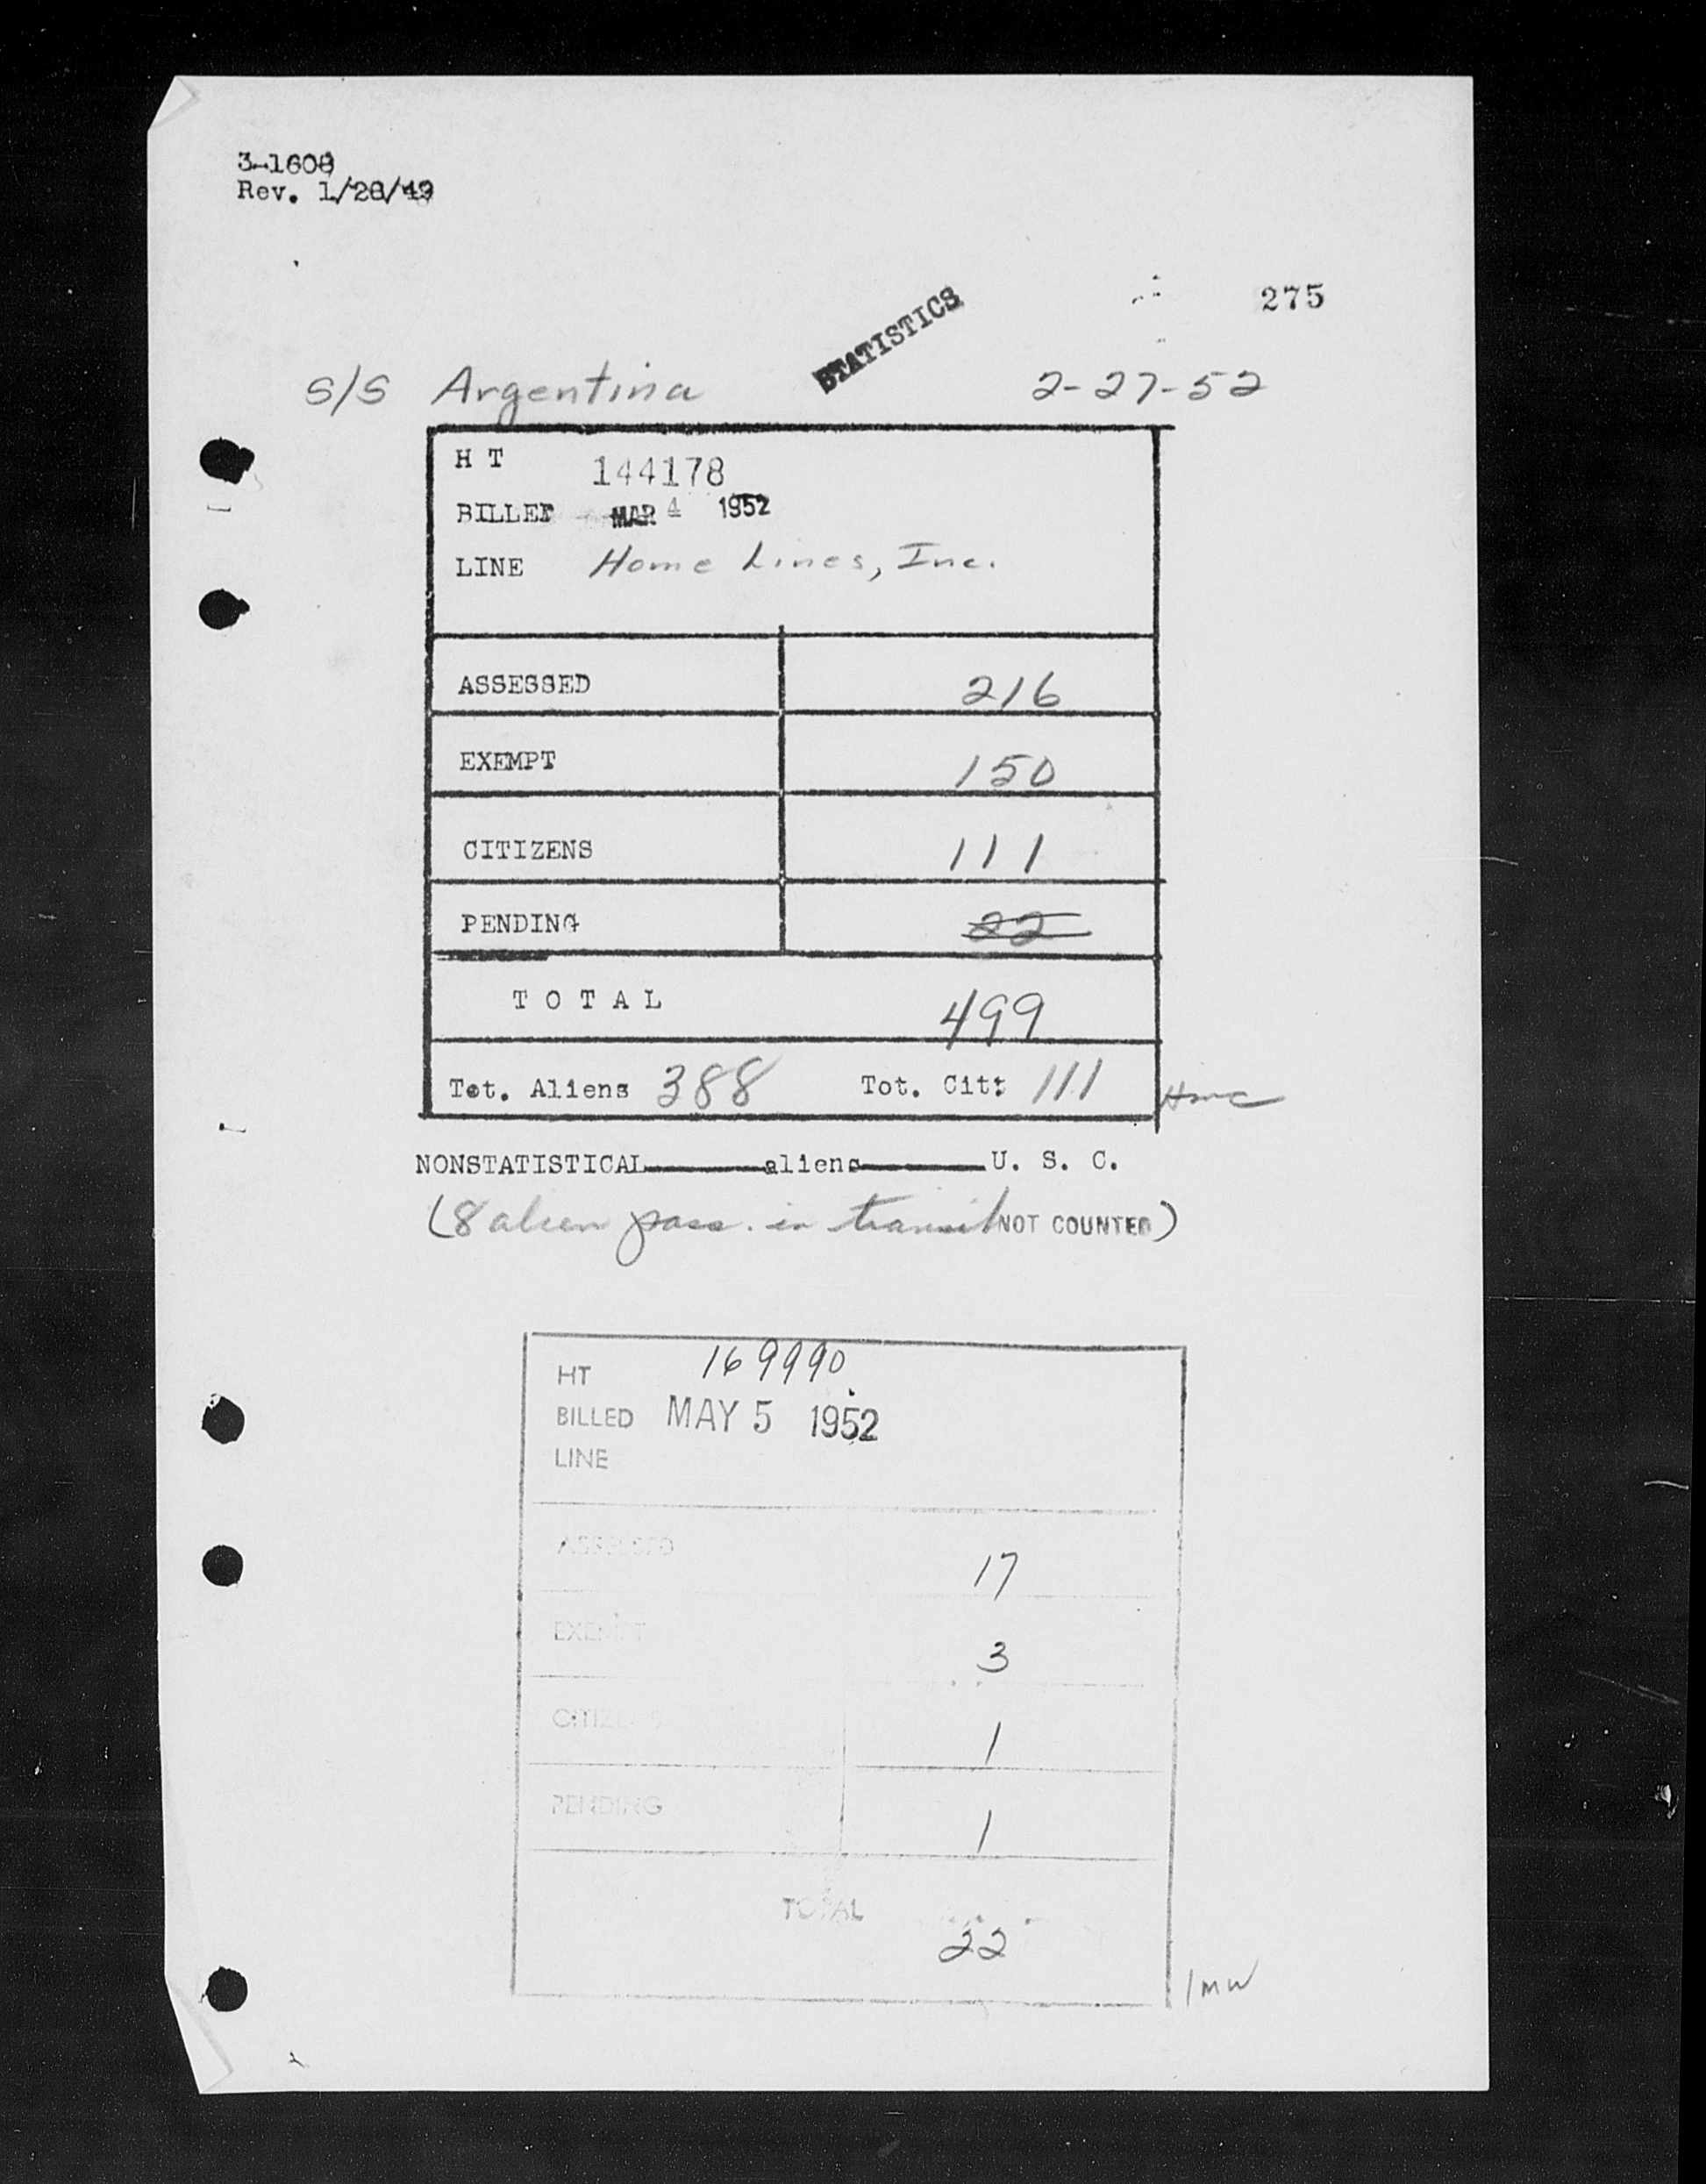 3-1608
Rev. 1/28/49
275
STATISTICS
S/S Argentina 2-27-52
H T 144178
BILLED MAR 4 1952
LINE Home Lines, Inc.
ASSESSED 216
EXEMPT 150
CITIZENS 111
PENDING 22
T O T A L 499
Tot. Aliens 388 Tot. Cit: 111 HMC
NONSTATISTICAL aliens U. S. C.
(8 alien pass. in transit NOT COUNTED)
HT 169990
BILLED MAY 5 1952
LINE
ASSESSED 17
EXEMPT 3
CITIZENS 1
PENDING 1
TOTAL 22
1mw